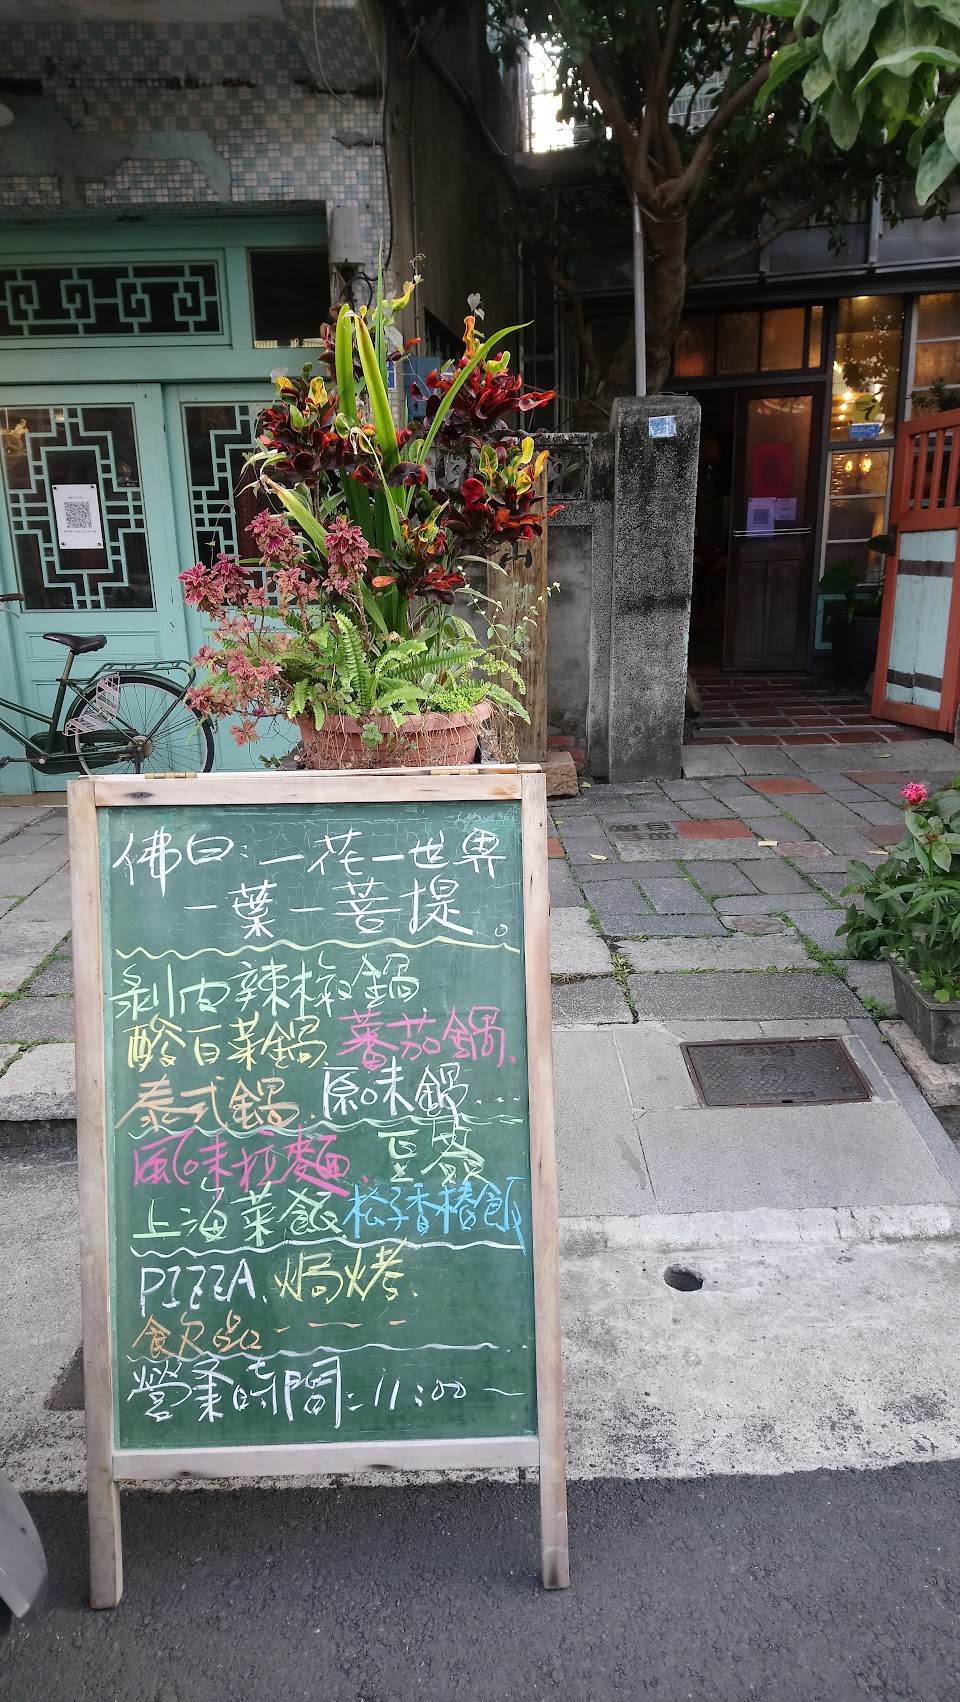 佛曰:一花一世界
一葉一菩提。
剝皮辣椒鍋.
酸白菜鍋.蕃茄鍋.
泰式鍋.原味鍋...
風味拉麵.
上海菜飯.松子香椿飯
PIZZA.焗烤.
飲品---
營業時間:11:00~